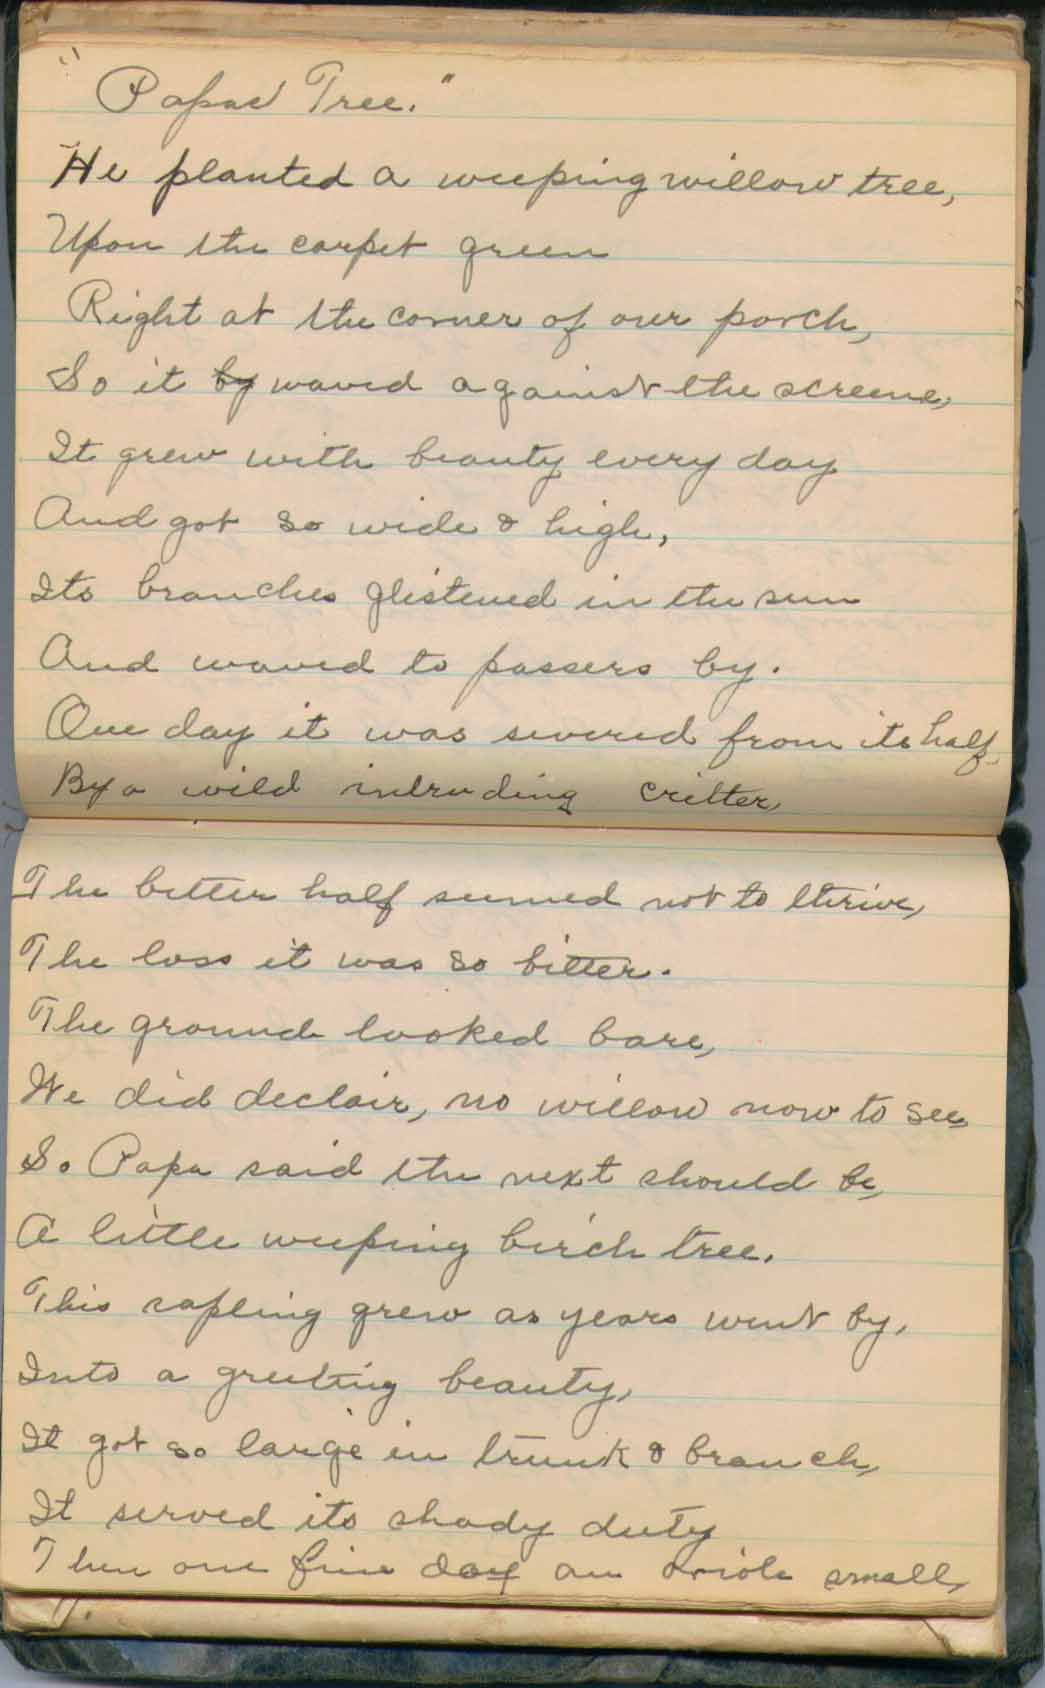 "Papas Tree."
He planted a weeping willow tree,
Upon the carpet green
Right at the corner of our porch,
So it by waved against the screene,
It grew with beauty every day
And got so wide & high,
Its branches glistened in the sun
And waved to passers by.
One day it was severed from its half,
By a wild intruding critter,
The better half seemed not to thrive,
The loss it was so bitter.
The ground looked bare,
We did declair, no willow now to see,
So Papa said the next should be,
A little weeping birch tree.
This sapling grew as years went by,
Into a greeting beauty,
It got so large in trunk & branch,
It served its shady duty
Then one fine day an oriole small,